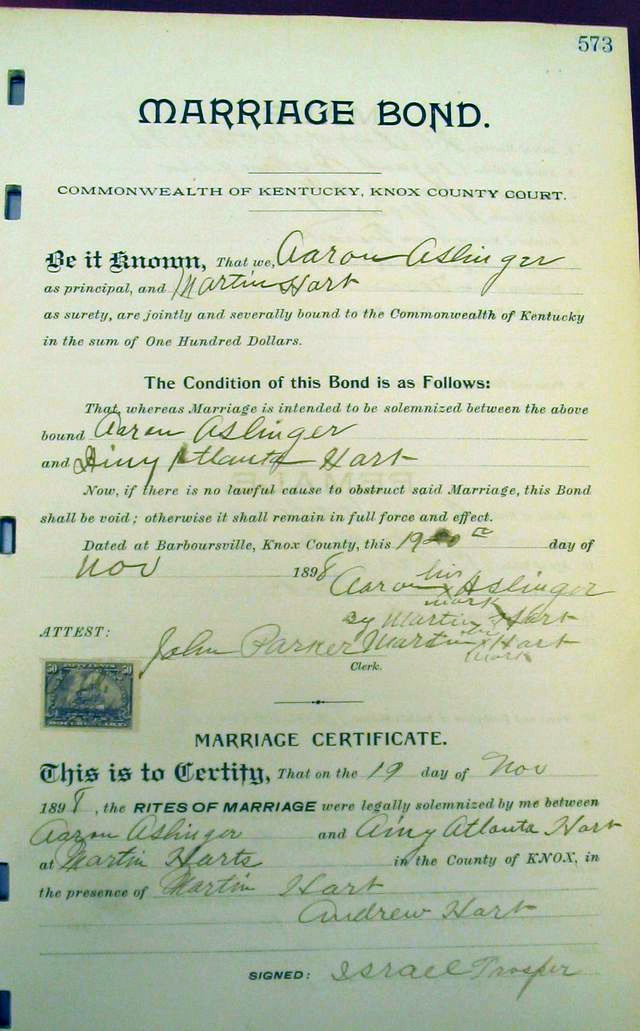 573
MARRIAGE BOND.
COMMONWEALTH OF KENTUCKY, KNOX COUNTY COURT.
Be it Known, That we, Aaron Aslinger
as principal, and Martin Hart
as surety, are jointly and severally bound to the Commonwealth of Kentucky
in the sum of One Hundred Dollars.
The Condition of this Bond is as Follows:
That, whereas Marriage is intended to be solemnized between the above
bound Aaron Aslinger
and Ainy Atlanta Hart
Now, if there is no lawful cause to obstruct said Marriage, this Bond
shall be void; otherwise it shall remain in full force and effect.
Dated at Barboursville, Knox County, this 19 day of
Nov 1898
Aaron his x mark Aslinger
By Martin Hart
ATTEST: John Parker Martin his x mark Hart
Clerk.
50 FIFTY CENTS 50
DOCUMENTARY
MARRIAGE CERTIFICATE.
This is to Certify, That on the 19 day of Nov
1898, the RITES OF MARRIAGE were legally solemnized by me between
Aaron Aslinger and Ainy Atlanta Hart
at Martin Harts in the County of KNOX, in
the presence of Martin Hart
Andrew Hart
SIGNED: Israel Prosper